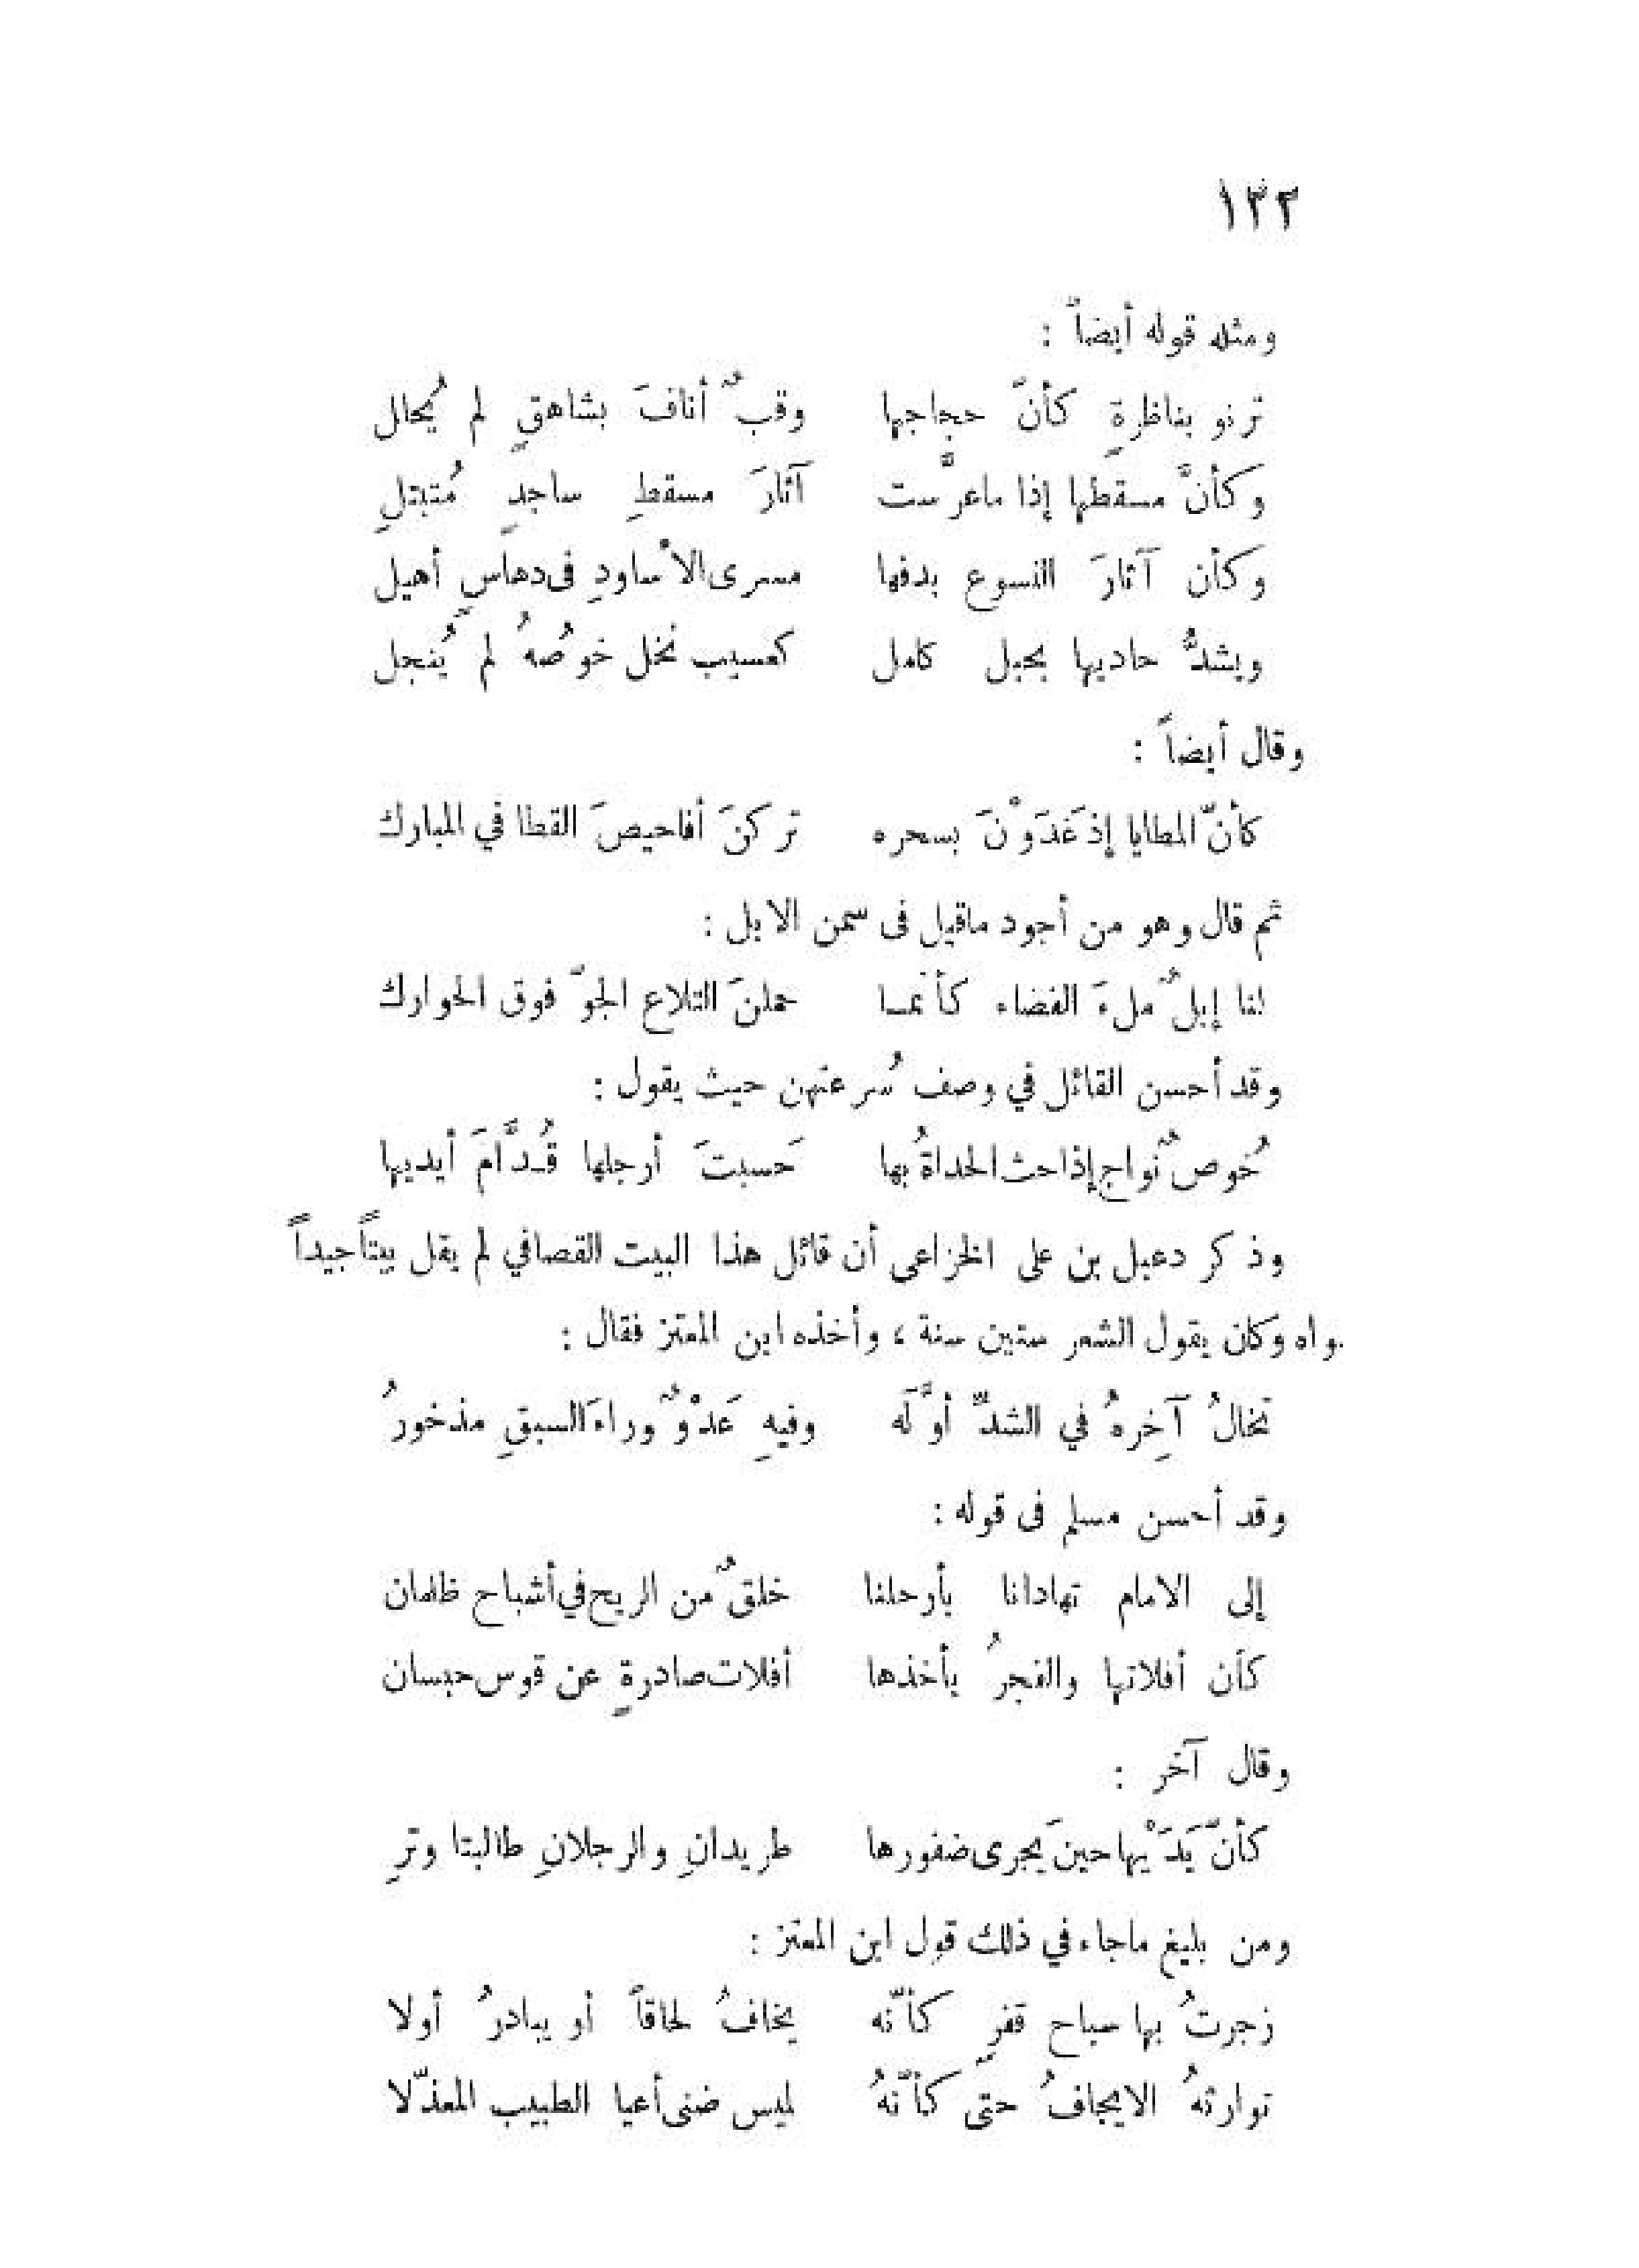 ١٢٢
ومثله قوله أيضاً :
ترنو بناظرةٍ كأنّ حجاجها وقبٌ أنافَ بشاهقٍ لم يُحالل
وكأنَّ مسقطها إذا ماعرَّست آثارَ مسقطِ ساجدٍ مُتبتلِ
وكأن آثارَ النسوع بدفها مسرى الأساودِ فى دهاسٍ أهيل
ويشدُّ حاديها بحبل كامل كعسيب نخل خوصُهُ لم يُنجل
وقال أيضاً :
كأنّ المطايا إذ غَدَوْنَ بسحره تركنَ أفاحيصَ القطا في المبارك
ثم قال وهو من أجود ماقيل فى سمن الابل :
لنا إبلٌ ملءَ الفضاء كأنما حملنَ التلاع الجوّ فوق الحوارك
وقد أحسن القائل في وصف سُرعتهن حيث يقول :
خُوصٌ نواج إذا حث الحداةُ بها حَسبتَ أرجلها قُدَّامَ أيديها
وذكر دعبل بن على الخزاعى أن قائل هذا البيت القصافي لم يقل بيتاً جيداً
سواه وكان يقول الشعر ستين سنة ، وأخذه ابن المعتز فقال :
تخالُ آخِرهُ في الشدِّ أوَّلَه وفيهِ عَدْوٌ وراءَ السبقِ مذخورُ
وقد أحسن مسلم فى قوله :
إلى الامام تهادانا بأرحلنا خلقٌ من الريح في أشباح ظلمان
كأن أفلاتها والفجرُ يأخذها أفلات صادرةٍ عن قوس حسبان
وقال آخر :
كأنّ يَدَيْها حينَ يجرى ضفورها طريدانِ والرجلانِ طالبتا وترِ
ومن بليغ ماجاء في ذلك قول ابن المعتز :
زجرتُ بها سباح قفرٍ كأنّه يخافُ لحاقاً أو يبادرُ أولا
توارثهُ الايجافُ حتى كأنّهُ لميس ضنى أعيا الطبيب المعذّلا